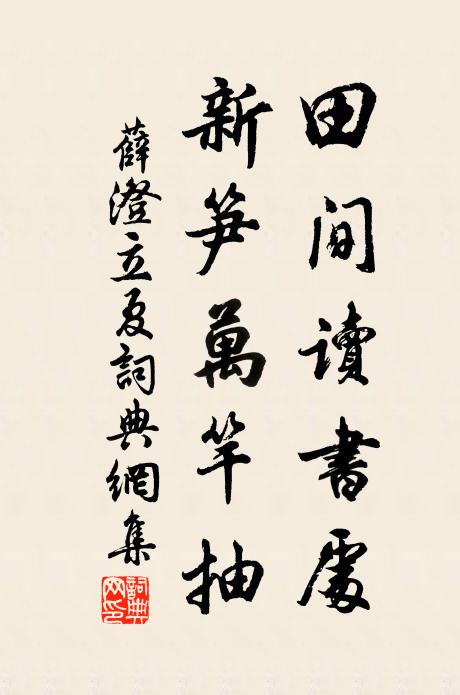 田間讀書處
新笋萬竿抽
薛澄立夏詞典網集
詞典网印